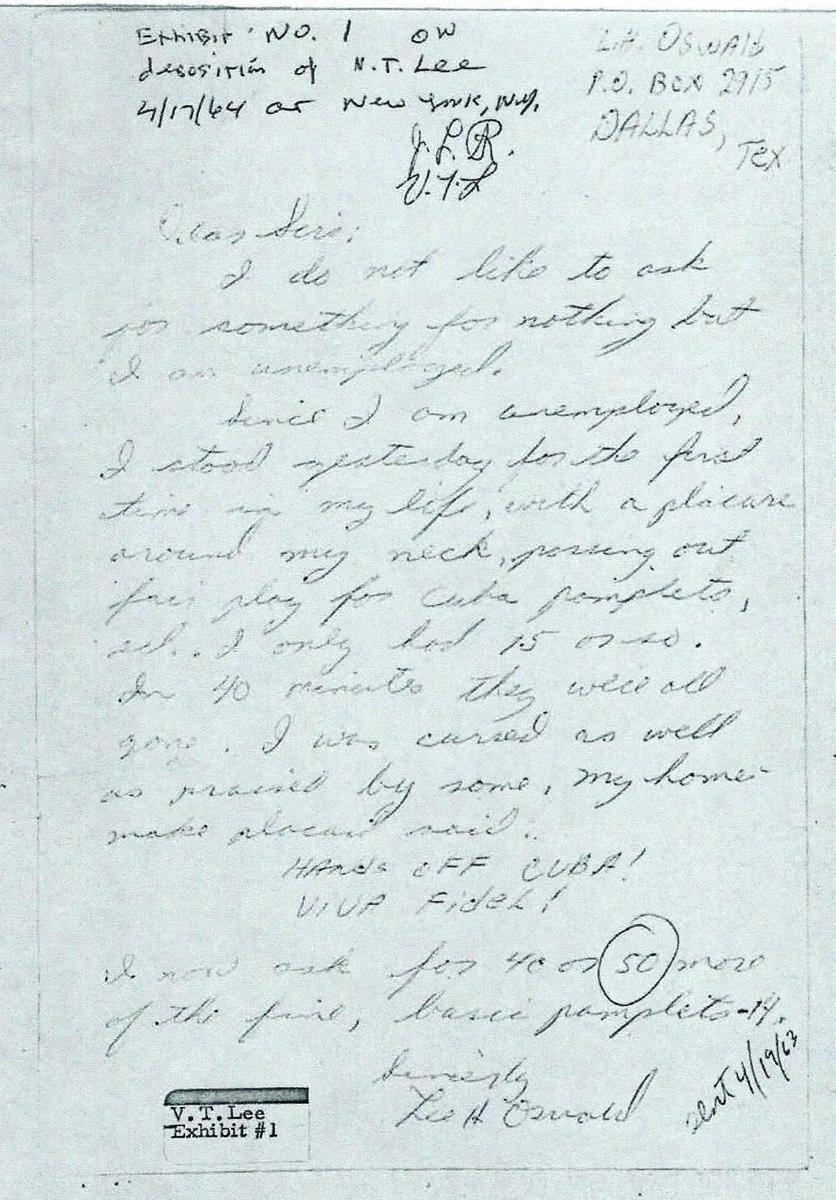 Exhibit NO. 1 on
deposition of V.T. Lee
4/17/64 at New York, N.Y.
J.L.R.
V.T.L
L.H. OSWALD
P.O. BOX 2915
DALLAS,
Tex
Dear Sirs:
I do not like to ask
for something for nothing but
I am unemployed.
Since I am unemployed,
I stood yesterday for the first
time in my life, with a placare
around my neck, passing out
fair play for Cuba pamplets,
I only had 15 or so.
In 40 minutes they were all
gone. I was cursed as well
as praised by some. My home-
make placard said:
HANds OFF CUBA!
VIVA FideL!
I now ask for 40 or 50 more
of the fine, basic pamplets-14.
Sincerely
Lee H Oswald
sent 4/19/63
V.T.Lee
Exhibit #1